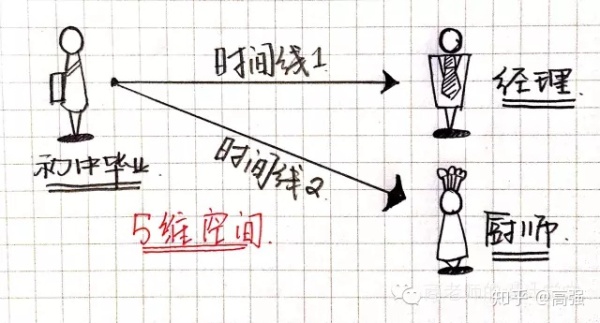 时间线1
经理.
初中毕业.
时间线2
5维空间.
厨师.
知乎 @高强